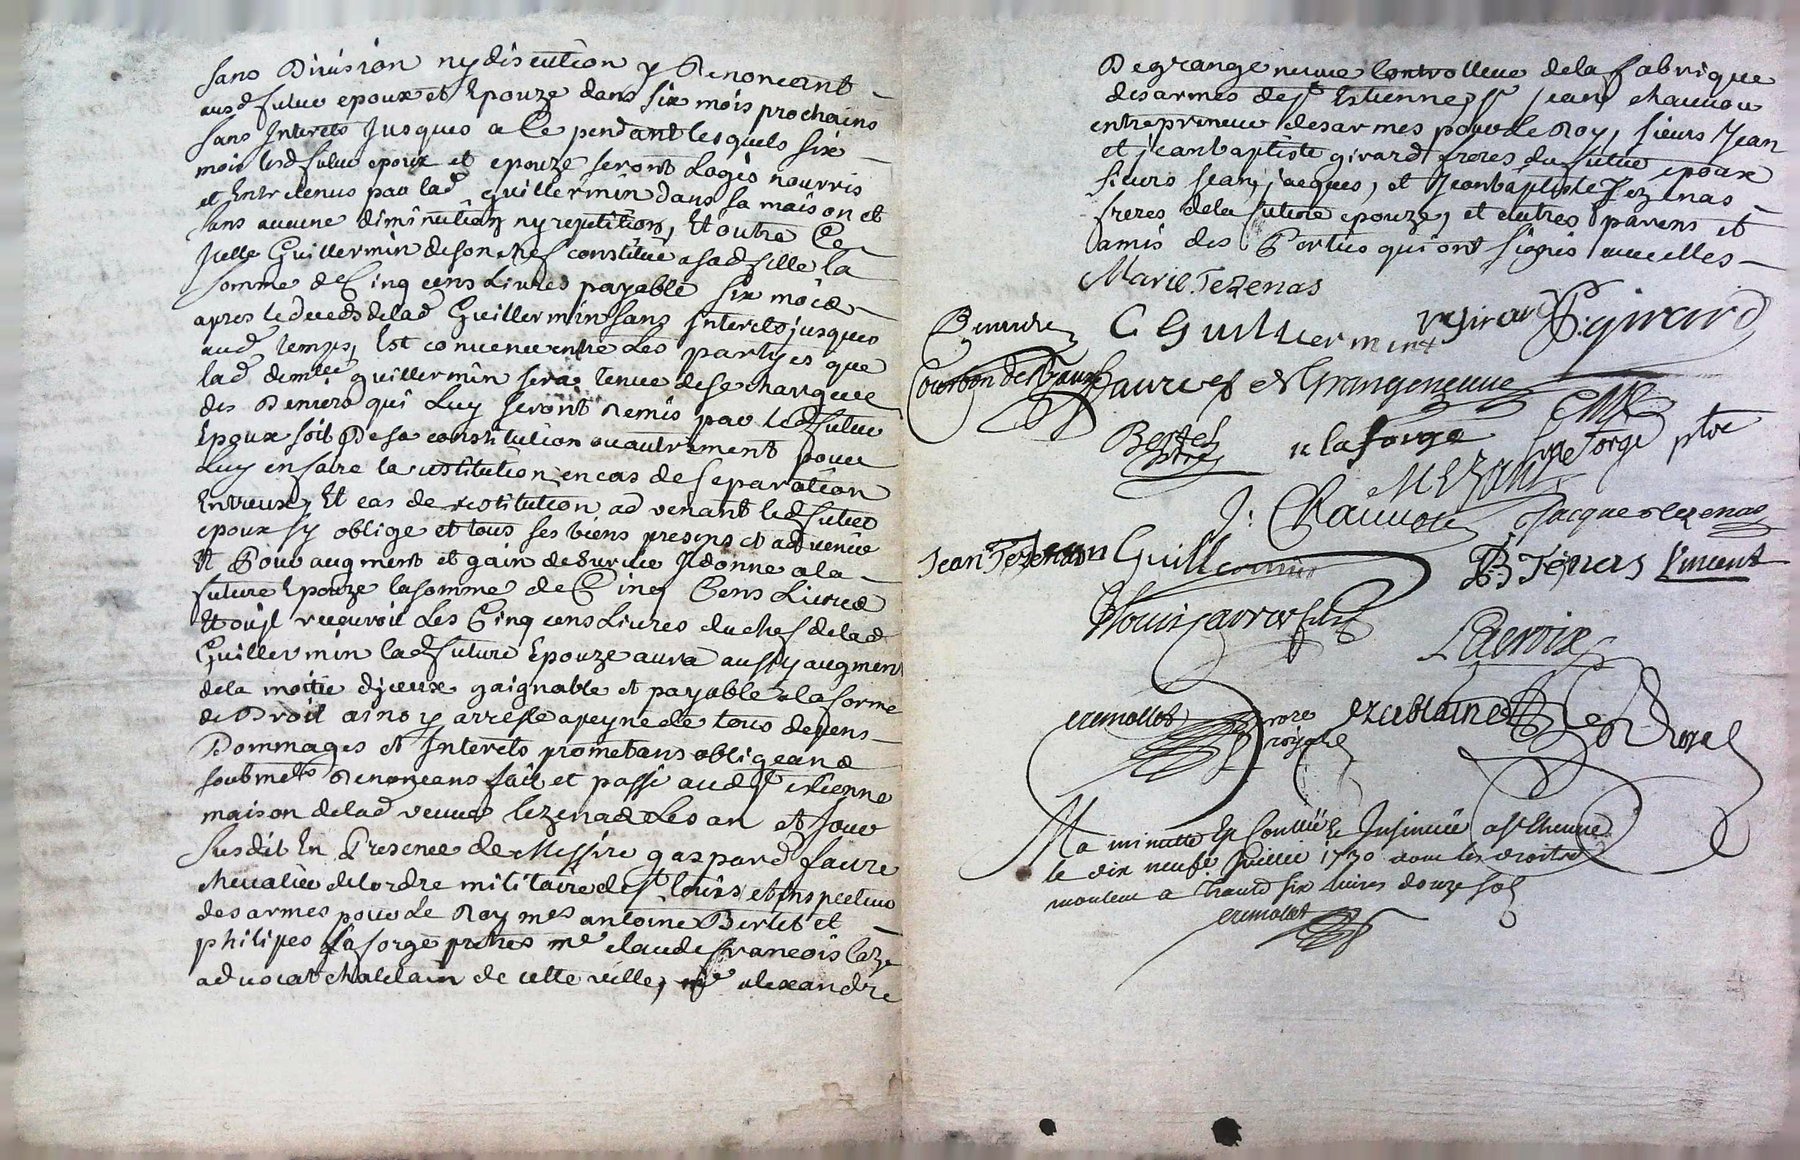 sans Division ny discution y Renoncant
ausd futur epoux et Epouze dans six mois prochains
sans Interets Jusques a Ce pendant lesquels six
mois lesd futur epoux et epouze seront Logés nourris
et Entretenus par lad Guillermin dans sa maison et
sans aucune diminution ny repetition, Et outre Ce
Jcelle Guillermin de son chef constitue a sad fille la
somme de Cinq cens Livres payable six mois
apres le deceds de lad Guillermin sans Interets jusques
aud temps, Est convenu entre Les partyes que
lad demlle guillermin sera tenue de se charger
des Deniers qui Luy seront Remis par led futur
Epoux soit De sa constitution ou autrement pour
Luy en faire la restitution en cas de separation
Entreux, Et cas de restitution advenant led futur
epoux sy oblige et tous ses biens presens et advenir
Et Pour augment et gain de survie Jl donne a la
future Epouze la somme de Cinq Cens Livres
Et ou jl recevroit Les Cinq cens Livres du chef de lad
Guillermin lad future Epouze aura aussy augment
de la moitié djceux gaignable et payable a la forme
de Droit ainsy arresté a peyne de tous depens
Dommages et Interets promettans obligeans
soubmets Renonçans fait et passé aud st etienne
maison de lad veuve tezenas Les an et Jour
susdit En Presence de Messire gaspard faure
chevalier de lordre militaire de st Louis et inspecteur
des armes pour Le Roy mes antoine Bertet et
philipes Laforge pretres me claude françois caze
advocat chatelain de cette ville, me alexandre
Degrangeneuve Controlleur de la fabrique
des armes de st Estienne, sr Jean chauvon
entrepreneur des armes pour Le Roy, sieurs Jean
et jean baptiste girard freres du futur epoux
sieurs Jean, jacques, et Jean baptiste Tezenas
freres de la future epouze, et autres parens et
amis des Parties qui ont signés avec elles
Marie Tezenas
C Guillermin Girard P. girard
Courbon Faure Degrangeneuve
Bertet ptre laforge Caze
laforge ptre
J: Chauvon Jacque tezenas
Jean Tezenas Guillermin JB Tezenas Vincent
Lacroix
Ma minutte Est Controllée & Insinuée a st Etienne
le dix neufe Juillet 1730 dont les droits
montent a trante six livres douze sols